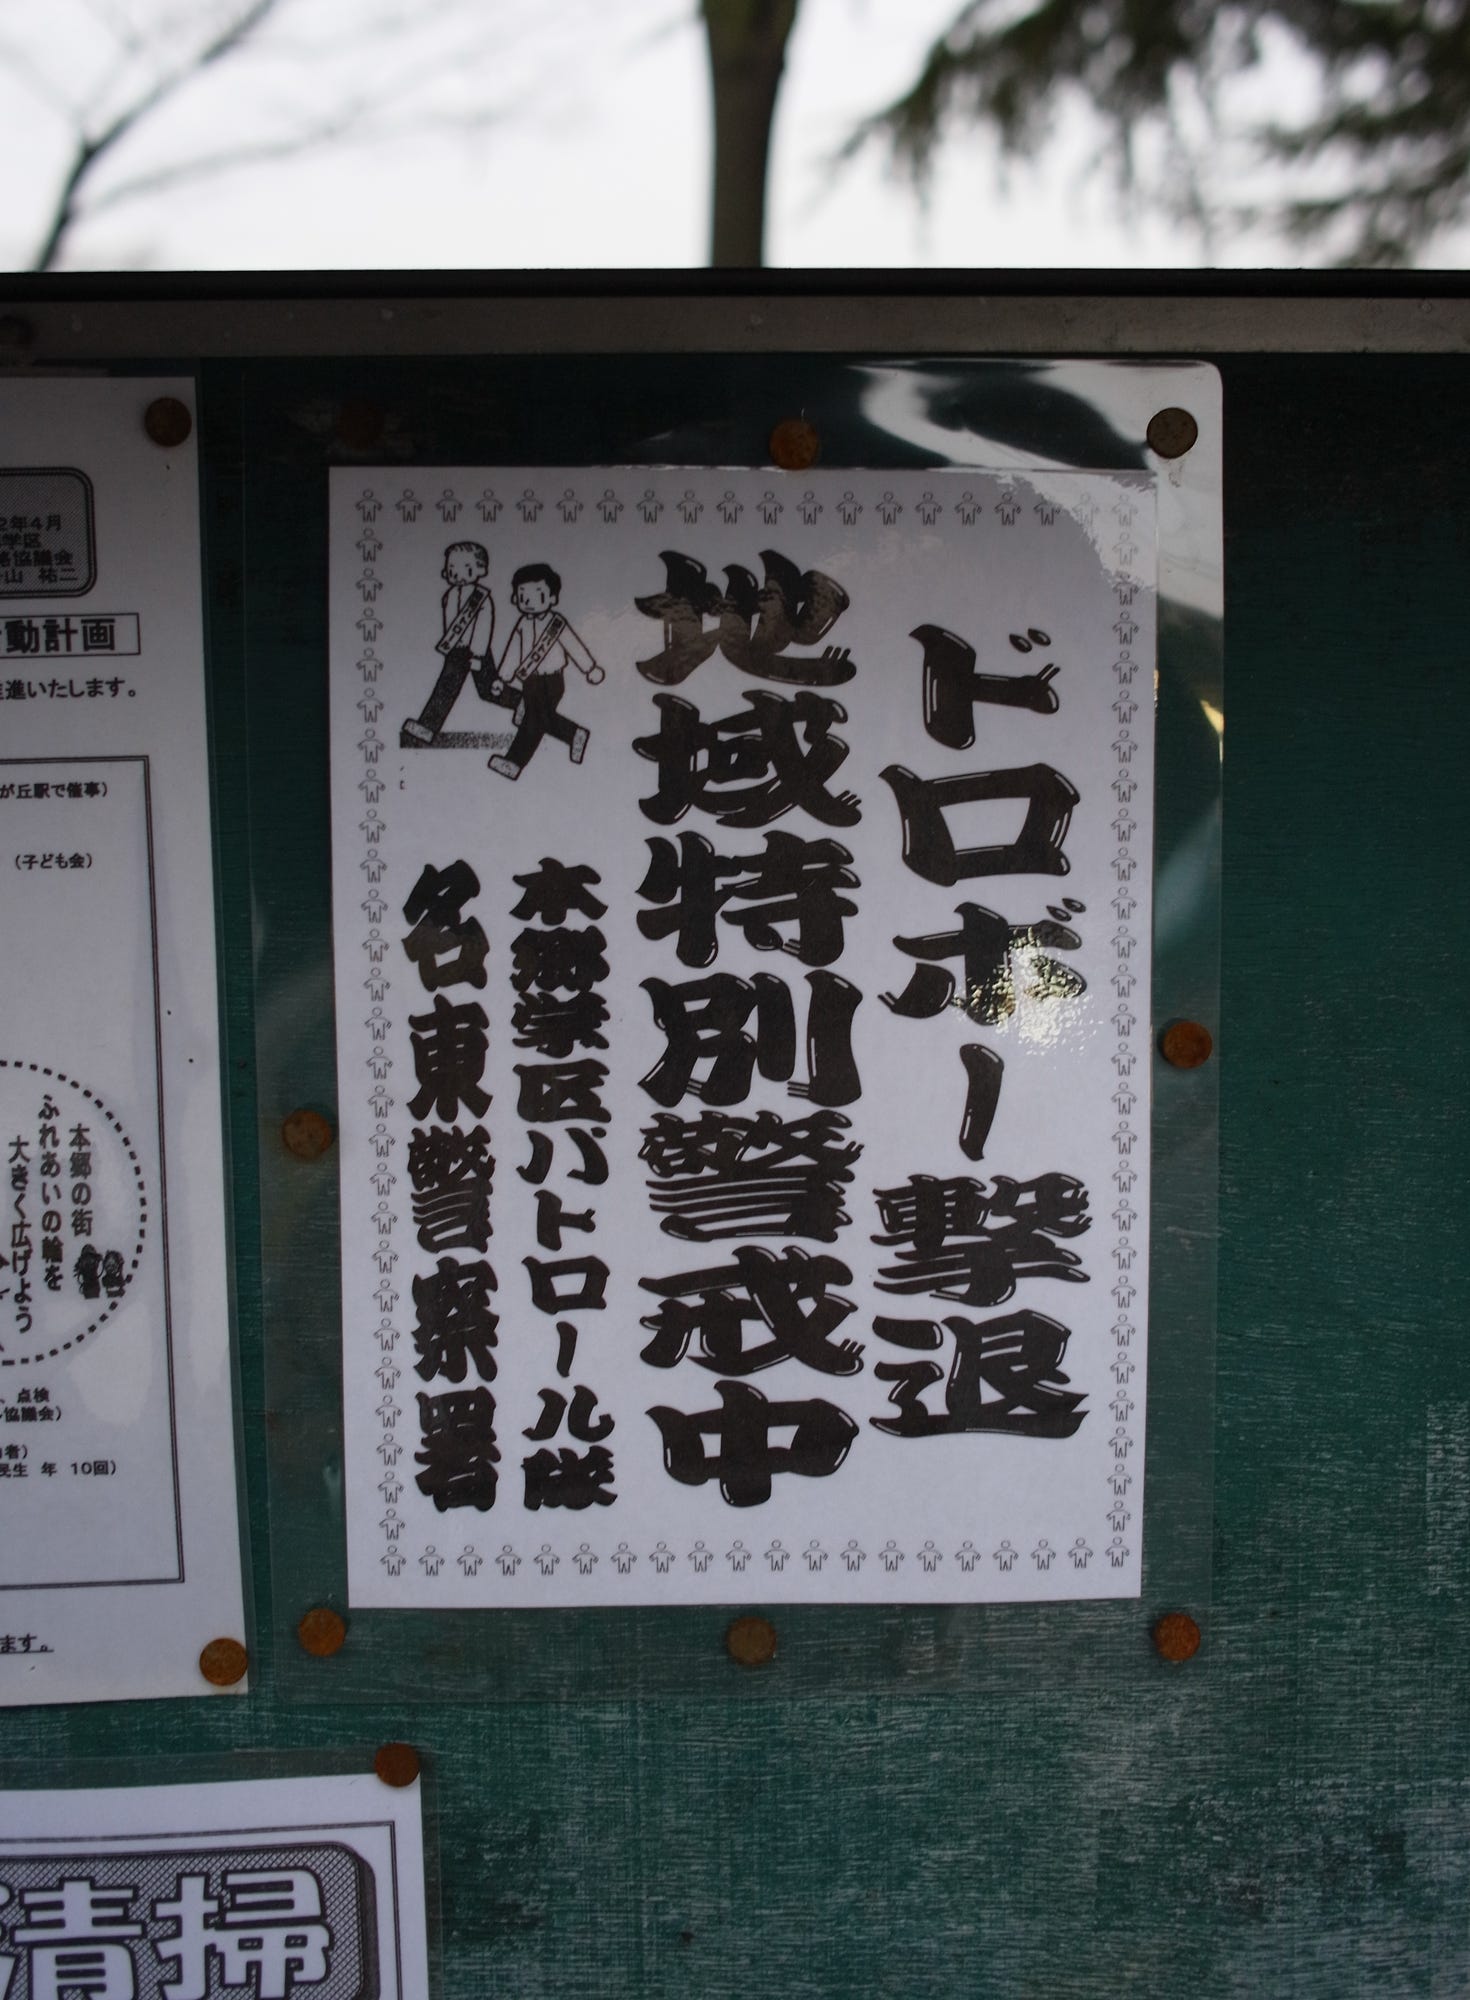 ドロボー撃退
地域特別警戒中
本郷学区パトロール隊
名東警察署
2年4月
学区
協議会
山 祐二
動計画
進いたします。
が丘駅で催事)
(子ども会)
本郷の街
ふれあいの輪を
大きく広げよう
、点検
協議会)
者)
民生 年 10回)
ます。
清掃